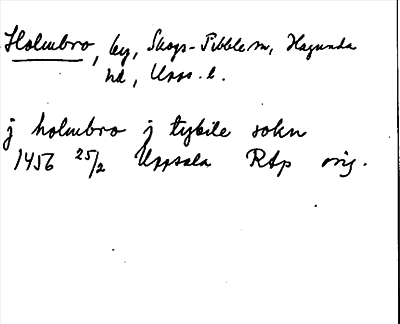 Holmbro, by, Skogs-Tibble sn, Hagunda
hd, Upps. l.
j holmbro j tybile sokn
1456 25/2 Uppsala RAp orig.